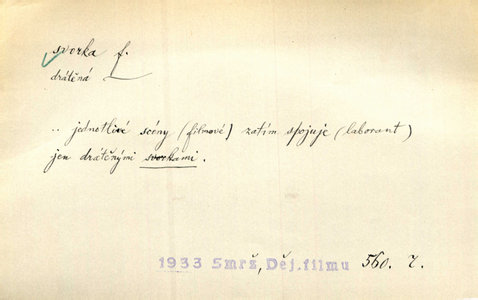 svorka f.
drátěná
.. jednotlivé scény (filmové) zatím spojuje (laborant)
jen drátěnými svorkami.
1933 Smrž, Děj. filmu 560. 7.